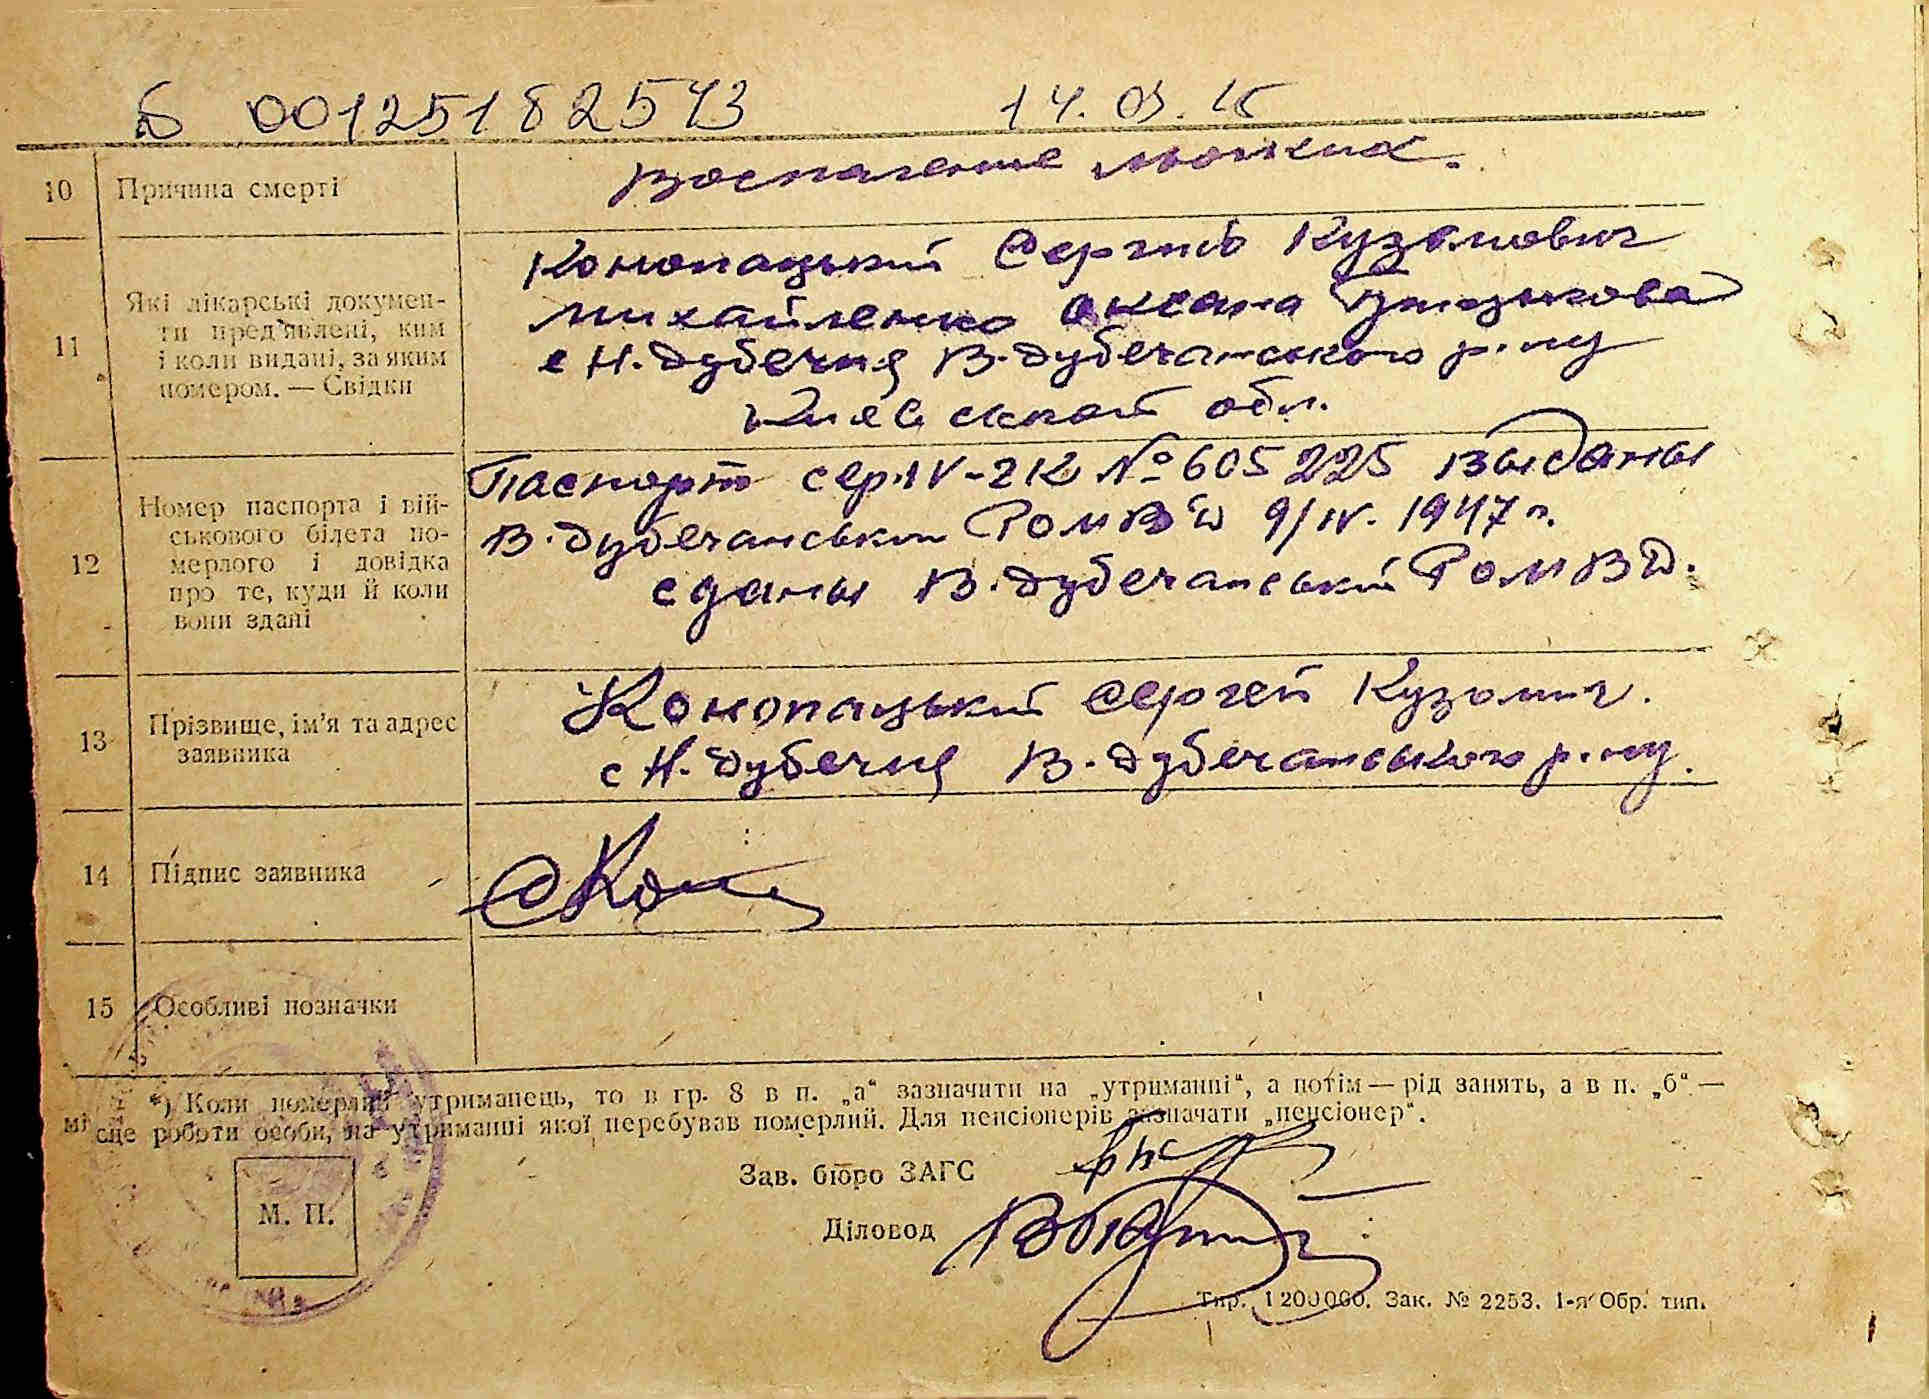 00125182573 14.03.
10 Причина смерті
Воспаление
11 Які лікарські докумен-
ти пред'явлені, ким
і коли видані, за яким
номером. — Свідки
Конопацький Сергий Кузьмович
Михайленко Оксана
с Н. Дубечня В-Дубечанського р-ну
Киевской обл.
12 Номер паспорта і вій-
ськового білета по-
мерлого і довідка
про те, куди й коли
вони здані
Паспорт сер. IV-2К № 605225 выданы
В-Дубечанськии РОМВД 9/IV. 1947 г.
сданы В-Дубечанський РОМВД.
13 Прізвище, ім'я та адрес
заявника
Конопацький Сергей Кузьмич.
с Н. Дубечня В-Дубечанського р-ну.
14 Підпис заявника
15 Особливі позначки
*) Коли померлий утриманець, то в гр. 8 в п. „а“ зазначити на „утриманні“, а потім — рід занять, а в п. „б“ —
місце роботи особи, на утриманні якої перебував померлий. Для пенсіонерів зазначати „пенсіонер“.
Зав. бюро ЗАГС
М. П.
Діловод
Тир. 1200000. Зак. № 2253. 1-я Обр. тип.